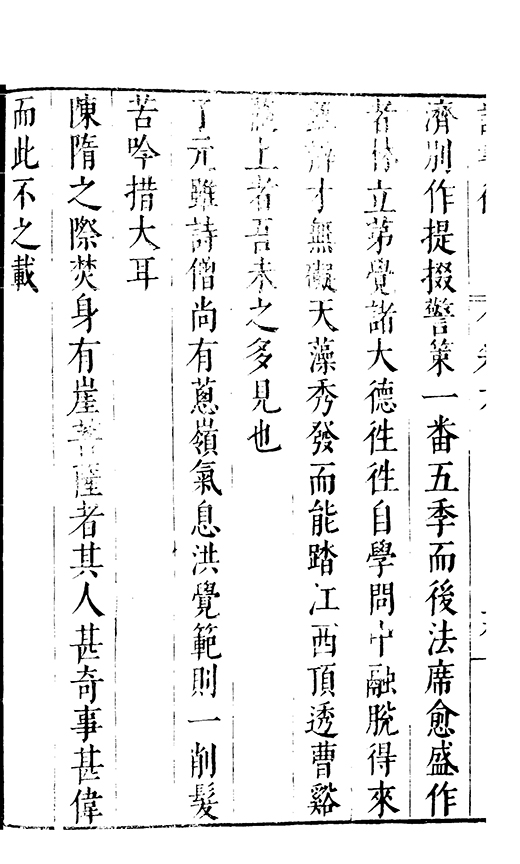 濟別作提掇警策一番五季而後法席愈盛作
者林立第覺諸大德徃徃自學問中融脫得來
辯才無礙天藻秀發而能踏江西頂透曹谿
上者吾未之多見也
了元雖詩僧尚有蔥嶺氣息洪覺範則一削髮
苦吟措大耳
陳隋之際焚身有崖菩薩者其人甚奇事甚偉
而此不之載